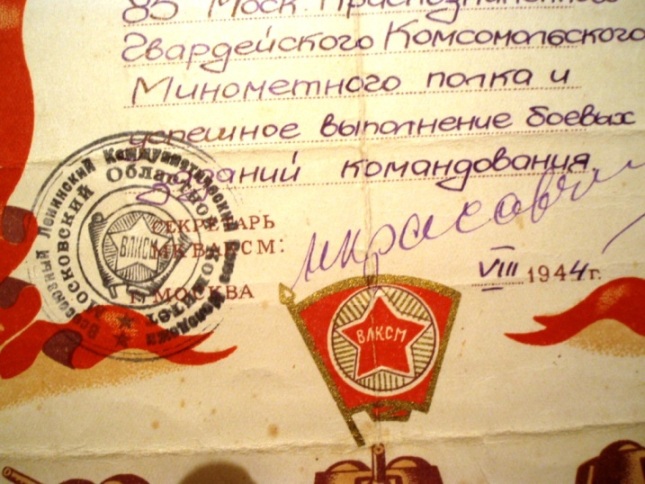 85 Моск. Краснознаменного
Гвардейского Комсомольского
Минометного полка и
успешное выполнение боевых
заданий командования
СЕКРЕТАРЬ
МК ВЛКСМ:
г. МОСКВА
VIII 1944 г.
Всесоюзный Ленинский Коммунистический Союз Молодежи
Московский Областной Комитет
ВЛКСМ
ВЛКСМ